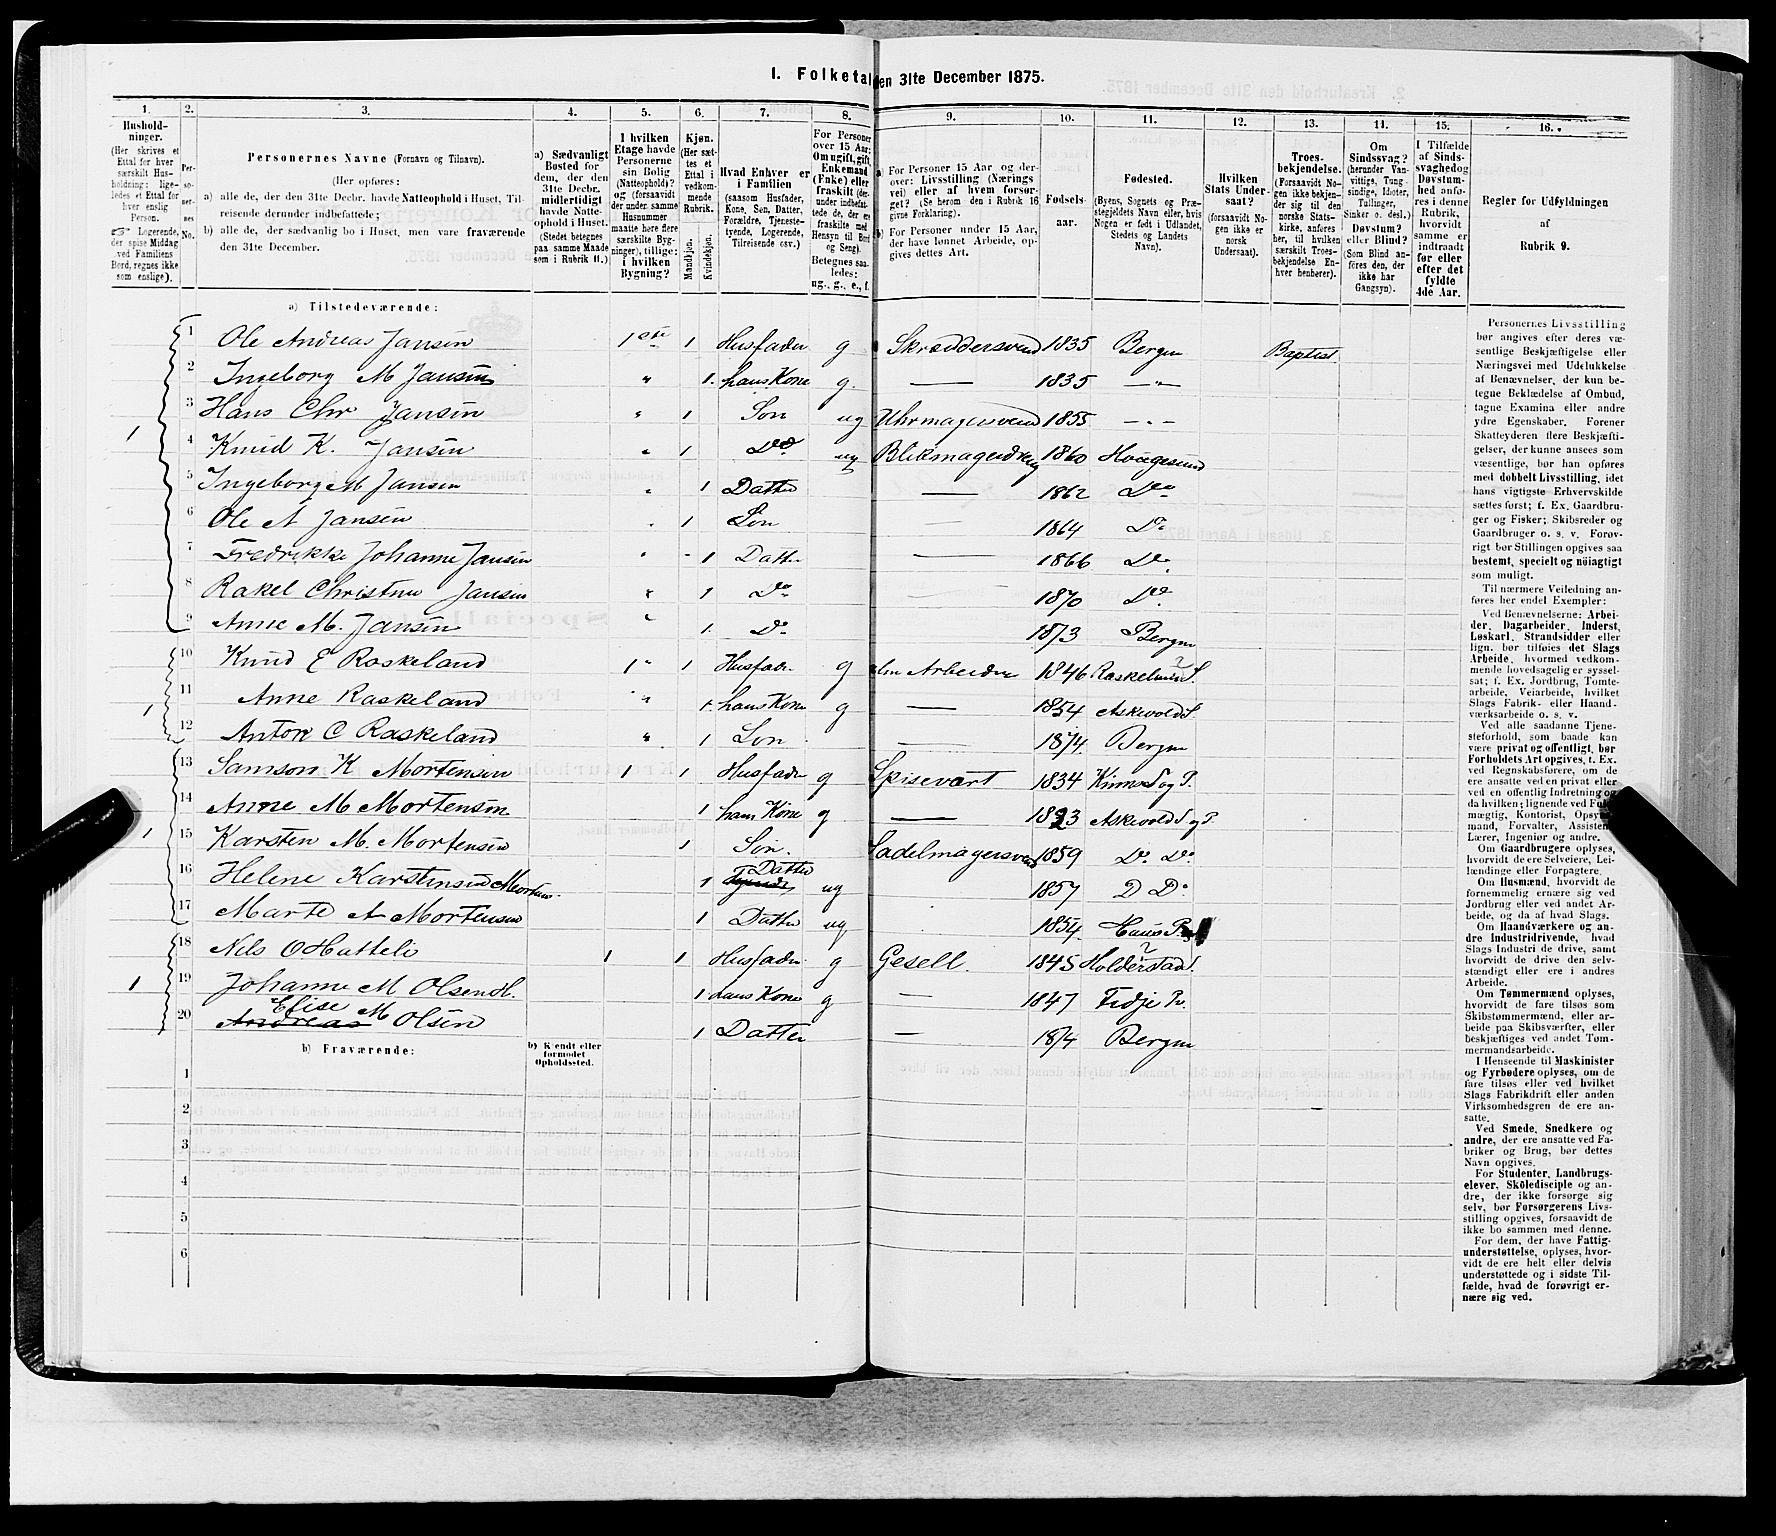 1. Folketal den 31te December 1875.
1. 2. 3. 4. 5. 6. 7. 8. 9. 10. 11. 12. 13. 14. 15. 16.
Husholdninger.
(Her skrives et Ettal for hver særskilt Husholdning; ligeledes et Ettal for hver enslig Person.
☞ Logerende, der spise Middag ved Familiens Bord, regnes ikke som enslige).
Personernes No.
Personernes Navne (Fornavn og Tilnavn).
(Her opføres:
a) alle de, der den 31te Decbr. havde Natteophold i Huset, Tilreisende derunder indbefattede;
b) alle de, der sædvanlig bo i Huset, men vare fraværende den 31te December.
a) Sædvanligt Bosted for dem, der den 31te Decbr. midlertidigt havde Natteophold i Huset. (Stedet betegnes paa samme Maade som i Rubrik 11.)
I hvilken Etage havde Personerne sin Bolig (Natteophold)? og (forsaavidt der under samme Husnummer maatte høre flere særskilte Bygninger), tillige: i hvilken Bygning?
Kjøn. (Her sættes et Ettal i vedkommende Rubrik.
Mandkjøn. Kvindekjøn.
Hvad Enhver er i Familien (saasom Husfader, Kone, Søn, Datter, Forældre, Tjenestetyende, Logerende, Tilreisende osv.)
For Personer over 15 Aar: Om ugift, gift, Enkemand (Enke) eller fraskilt (derunder indbefattede de, der ere fraskilte med Hensyn til Bord og Seng). Betegnes saaledes: ug., g., e., f.
a) For Personer 15 Aar og derover: Livsstilling (Næringsvei) eller af hvem forsørget? (Se herom den i Rubrik 16 givne Forklaring).
b) For Personer under 15 Aar, der have lønnet Arbeide, opgives dettes Art.
Fødselsaar.
Fødested.
(Byens, Sognets og Præstegjeldets Navn eller, hvis Nogen er født i Udlandet, Stedets og Landets Navn).
Hvilken Stats Undersaat? (forsaavidt Nogen ikke er norsk Undersaat).
Troesbekjendelse. (Forsaavidt Nogen ikke bekjender sig til den norske Statskirke, anføres her, til hvilken særskilt Troesbekjendelse Enhver henhører).
Om Sindssvag? (herunder Vanvittige, Tungsindige, Idioter, Tullinger, Sinker o. desl.) Døvstum? eller Blind? (Som Blind anføres den, der ikke har Gangsyn).
I Tilfælde af Sindssvaghed og Døvstumhed anføres i denne Rubrik, hvorvidt samme er indtraadt før eller efter det fyldte 4de Aar.
Regler for Udfyldningen af Rubrik 9.
a) Tilstedeværende:
1 Ole Andreas Jansen 1ste 1 Husfader g Skræddersvend 1835 Bergen Baptist
2 Ingeborg M Jansen " 1. hans Kone g. — 1835 — " —
3 Hans Chr Jansen " 1 Søn ug Uhrmagersvend 1855 — " —
1 4 Knud K. Jansen " 1 Do ug Blikmagerdreng 1860 Hougesund
5 Ingeborg M Jansen " 1 Datter — 1862 Do
6 Ole A Jansen " 1 Søn — 1864 Do
7 Fredrikke Johanne Jansen " 1 Datter — 1866 Do
8 Rakel Christine Jansen " 1 Do — 1870 Do
9 Anne M. Jansen " 1. Do 1873 Bergen
10 Knud E Raskeland 1 " 1 Husfader g Arbeider 1846
1 11 Anne Raskeland " 1. hans Kone g — 1854 Askevold S.
12 Anton C Raskeland " 1 Søn — 1874 Bergen
13 Samson K Mortensen 1 1 Husfader g Spisevært 1834 Kinn S og P.
14 Anne M Mortensen 1 hans Kone g — 1823 Askevold S og P.
1 15 Karsten M. Mortensen 1 Søn. Sadelmagersvend 1859 Do Do
16 Helene Karstensen Mortens. 1 Datter ug 1857 D Do
17 Marte A Mortensen 1 Datter ug 1854 Haus P.
18 Nils O Hatteli 1 1 Husfader g Gesell. 1845
1 19 Johanne M Olsen H. 1 hans Kone g — 1847 Fedje Pr.
Elise M
20 Andreas Olsen 1 Datter — 1874 Bergen
b) Fraværende:
b) Kjendt eller formodet Opholdssted.
1
2
3
4
5
6
Personernes Livsstilling
bør angives efter deres væ-
sentlige Beskjæftigelse eller
Næringsvei med Udelukkelse
af Benævnelser, der kun be-
tegne Beklædelse af Ombud,
tagne Examina eller andre
ydre Egenskaber. Forener
Skatteyderen flere Beskjæfti-
gelser, der kunne ansees som
væsentlige, bør han opføres
med dobbelt Livsstilling, idet
hans vigtigste Erhvervskilde
sættes først; f. Ex. Gaardbru-
ger og Fisker; Skibsreder og
Gaardbruger o. s. v. Forøv-
rigt bør Stillingen opgives saa
bestemt, specielt og nöiagtigt
som muligt.
Til nærmere Veiledning an-
føres her endel Exempler:
Ved Benævnelserne: Arbei-
der, Dagarbeider, Inderst,
Løskarl, Strandsidder eller
lign. bør tilføies det Slags
Arbeide, hvormed vedkom-
mende hovedsagelig er syssel-
sat; f. Ex. Jordbrug, Tomte-
arbeide, Veiarbeide, hvilket
Slags Fabrik- eller Haand-
værksarbeide o. s. v.
Ved alle saadanne Tjene-
steforhold, som baade kan
være privat og offentligt, bør
Forholdets Art opgives, t. Ex.
ved Regnskabsførere, om de
ere ansatte ved en privat eller
ved en offentlig Indretning og
da hvilken; lignende ved Fuld-
mægtig, Kontorist, Opsyns-
mand, Forvalter, Assistent,
Lærer, Ingeniør og andre.
Om Gaardbrugere oplyses,
hvorvidt de ere Selveiere, Lei-
lændinge eller Forpagtere.
Om Husmænd, hvorvidt de
fornemmelig ernære sig ved
Jordbrug eller ved andet Ar-
beide, og da af hvad Slags.
Om Haandværkere og an-
dre Industridrivende, hvad
Slags Industri de drive, samt
hvorvidt de drive den selv-
stændigt eller ere i andres
Arbeide.
Om Tømmermænd oplyses,
hvorvidt de fare tilsøs som
Skibstømmermænd, eller ar-
beide paa Skibsværfter, eller
beskjæftiges ved andet Tøm-
mermandsarbeide.
I Henseende til Maskinister
og Fyrbødere oplyses, om de
fare tilsøs eller ved hvilket
Slags Fabrikdrift eller anden
Virksomhedsgren de ere an-
satte.
Ved Smede, Snedkere og
andre, der ere ansatte ved Fa-
briker og Brug, bør dettes
Navn opgives.
For Studenter, Landbrugs-
elever, Skoledisciple og an-
dre, der ikke forsørge sig
selv, bør Forsørgerens Livs-
stilling opgives, forsaavidt de
ikke bo sammen med denne.
For dem, der have Fattig-
understøttelse, oplyses, hvor-
vidt de ere helt eller delvis
understøttede og i sidste Til-
fælde, hvad de forøvrigt er-
nære sig ved.